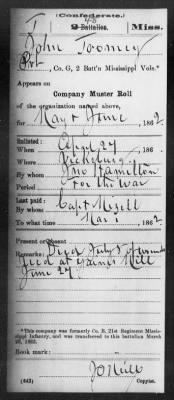 (Confederate.)
T 48
9 Battalion. Miss.
John Toomey
Pvt., Co. G, 2 Batt'n Mississippi Vols.*
Appears on
Company Muster Roll
of the organization named above,
for May & June, 1862
Enlisted:
When April 27, 186
Where Vicksburg
By whom Jno Hamilton
Period for the war
Last paid:
By whom Capt Mizell
To what time Mar 1, 1862
Present or absent
Remarks: Died July 5 of wounds
recd at Gaines Mill
June 27.
*This company was formerly Co. B, 21st Regiment Mississippi
Infantry, and was transferred to this battalion March
Book mark:
(642) Copyist.